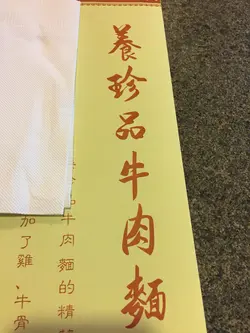 養珍品牛肉麵
品牛肉麵的精
加了雞、牛骨